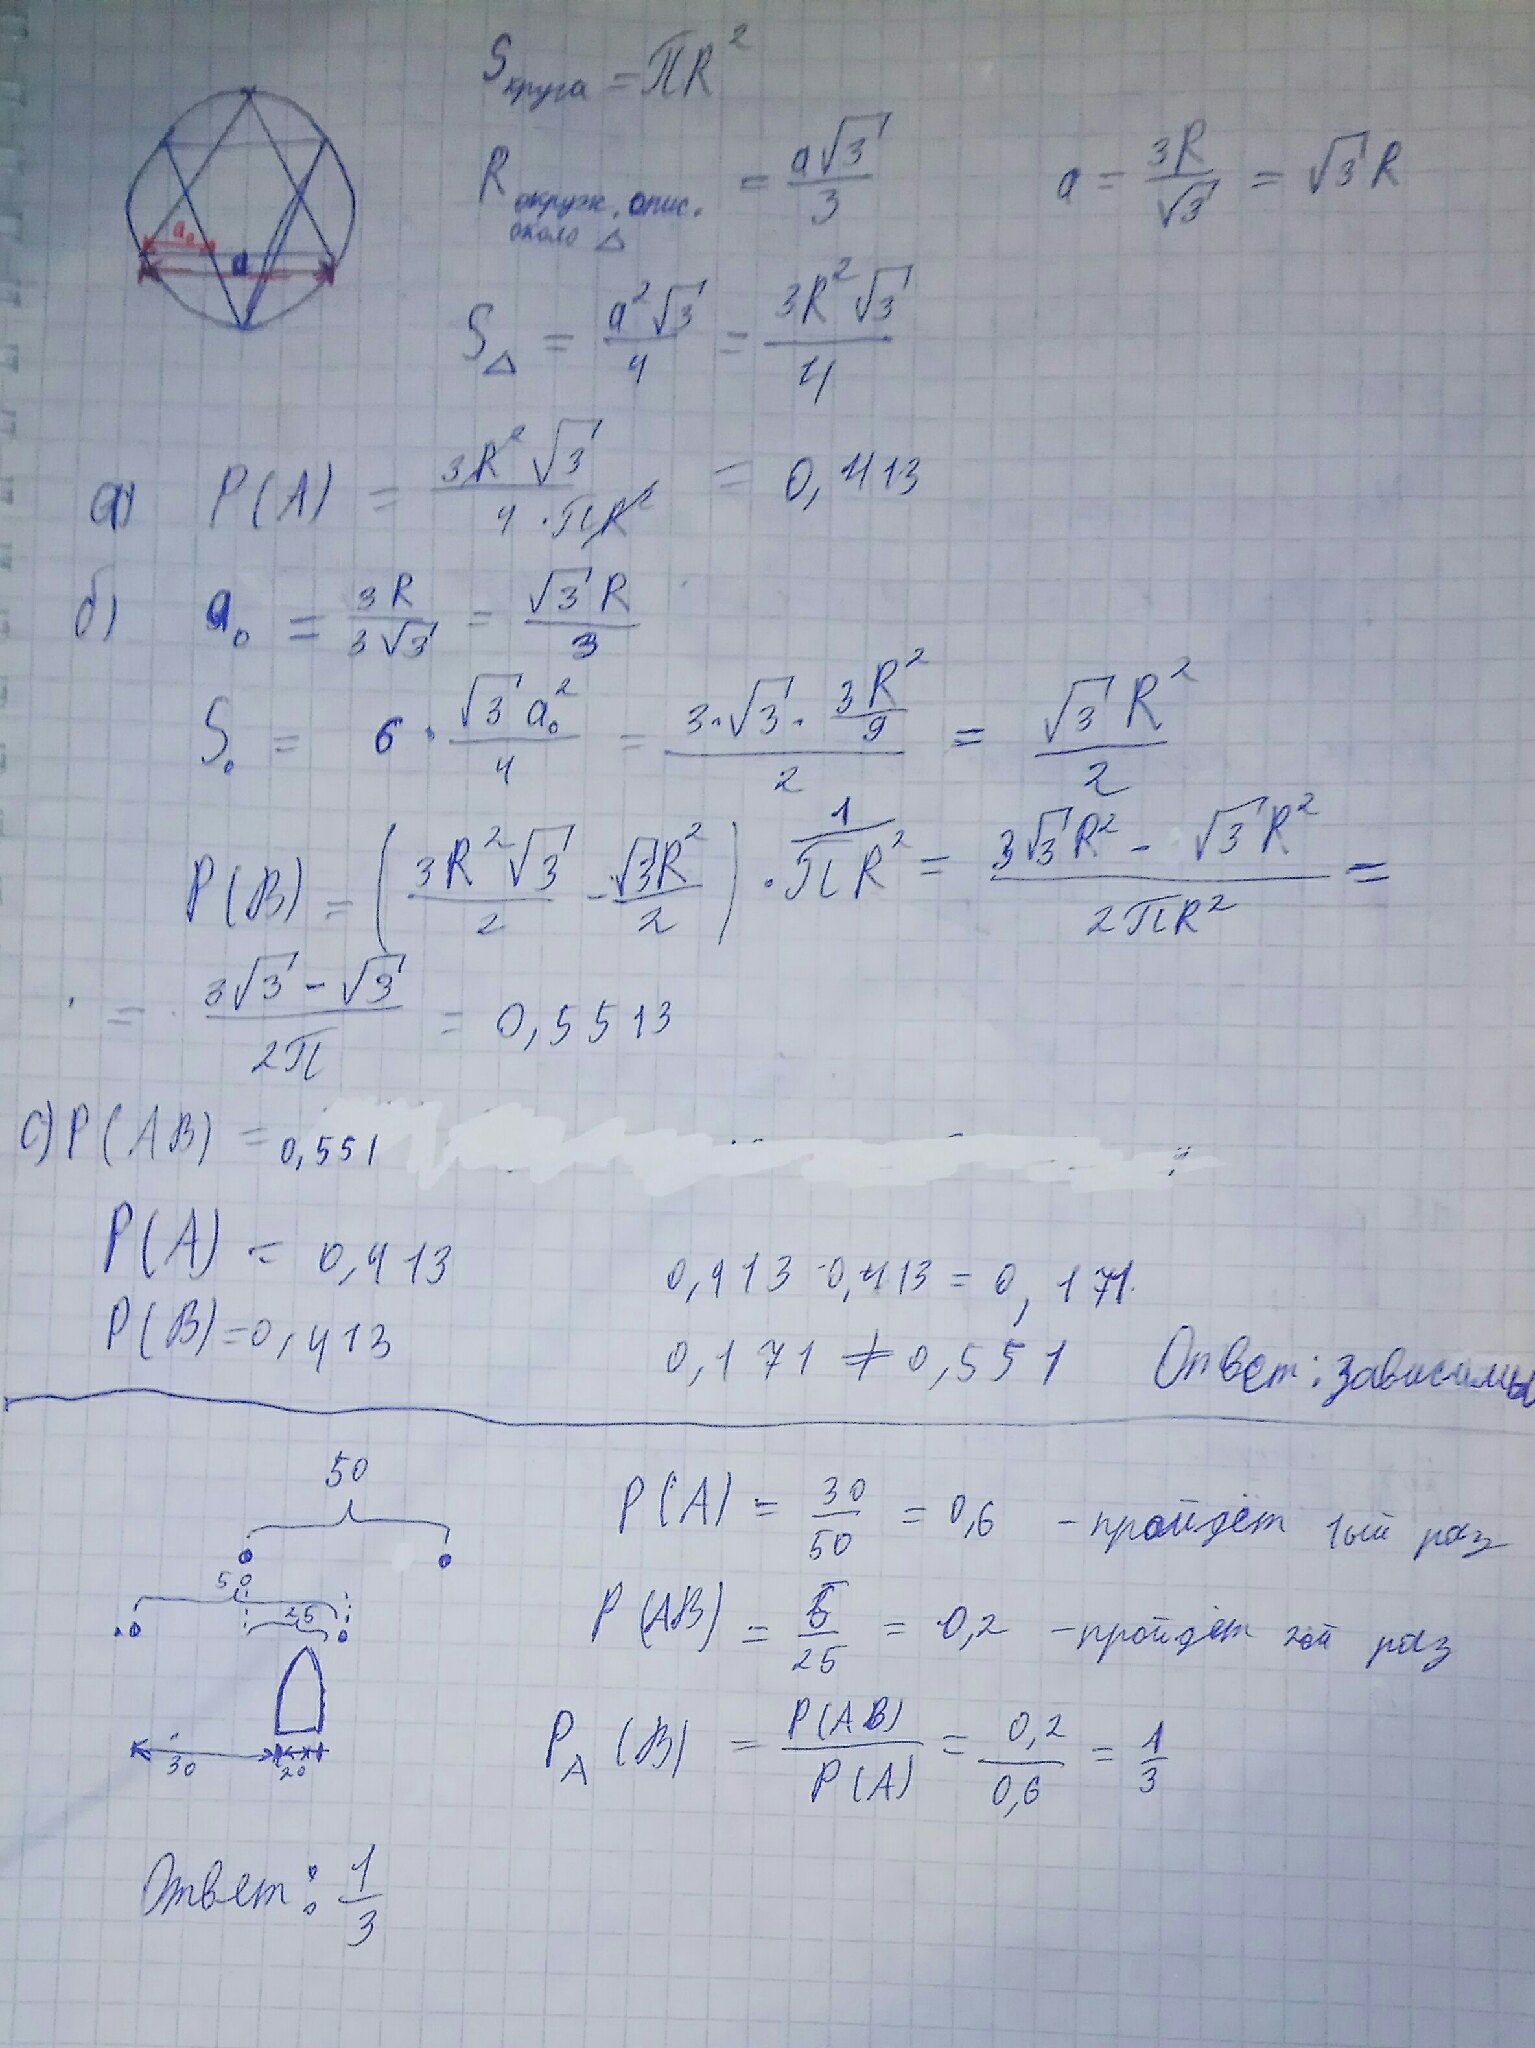 S круга = πR²
R окруж. опис. около Δ = a√3/3    a = 3R/√3 = √3 R
a₀
a
S_Δ = a²√3/4 = 3R²√3/4
а) P(A) = 3R²√3/(4·πR²) = 0,413
б) a₀ = 3R/(3√3) = √3 R/3
S₀ = 6 · √3 a₀²/4 = (3·√3 · 3R²/9)/2 = √3 R²/2
P(B) = (3R²√3/2 - √3R²/2) · 1/(πR²) = (3√3R² - √3R²)/(2πR²) =
= (3√3 - √3)/(2π) = 0,5513
c) P(AB) = 0,551
P(A) = 0,413    0,413·0,413 = 0,171
P(B) = 0,413    0,171 ≠ 0,551    Ответ: зависимы
50
P(A) = 30/50 = 0,6 - пройдёт 1ый раз
50
25
P(AB) = 5/25 = 0,2 - пройдёт 2ой раз
30
20
P_A(B) = P(AB)/P(A) = 0,2/0,6 = 1/3
Ответ: 1/3